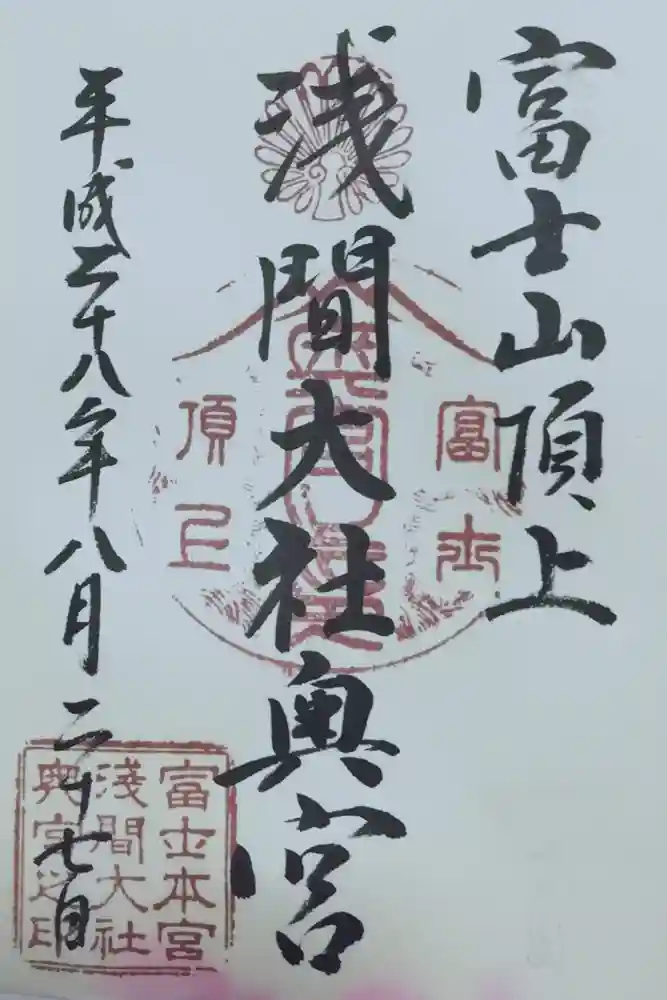 富士山頂上
浅間大社奥宮
平成二十八年八月二十七日
富士
頂上
奥宮
富士本宮
浅間大社
奥宮之印